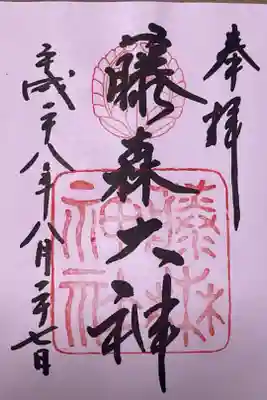 奉拝
藤森大神
平成二十八年八月二十七日
藤森神社